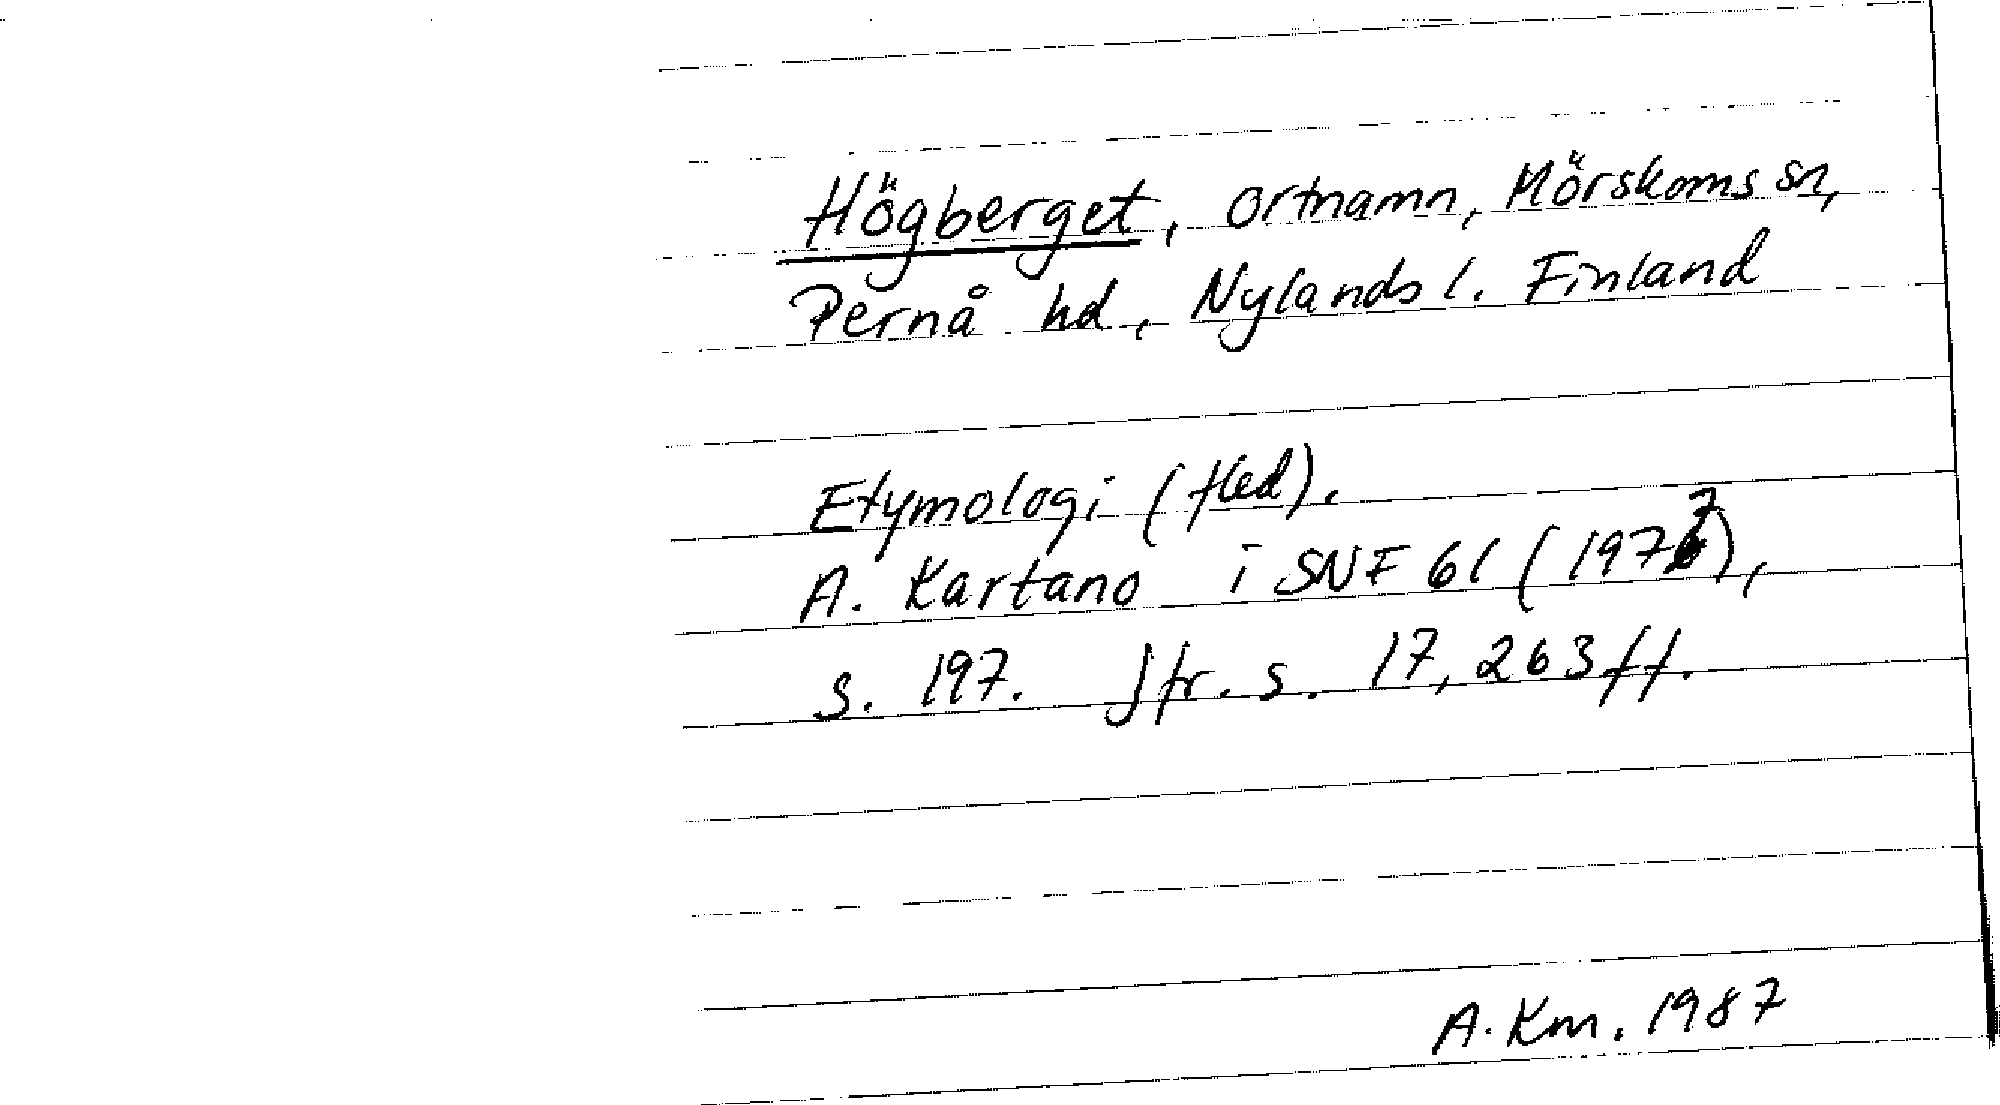 Högberget, ortnamn, Mörskoms sn,
Pernå hd, Nylands l. Finland
Etymologi (fled).
A. Kartano i SNF 61 (1977),
s. 197. Jfr. s. 17, 263 ff.
A. Km. 1987